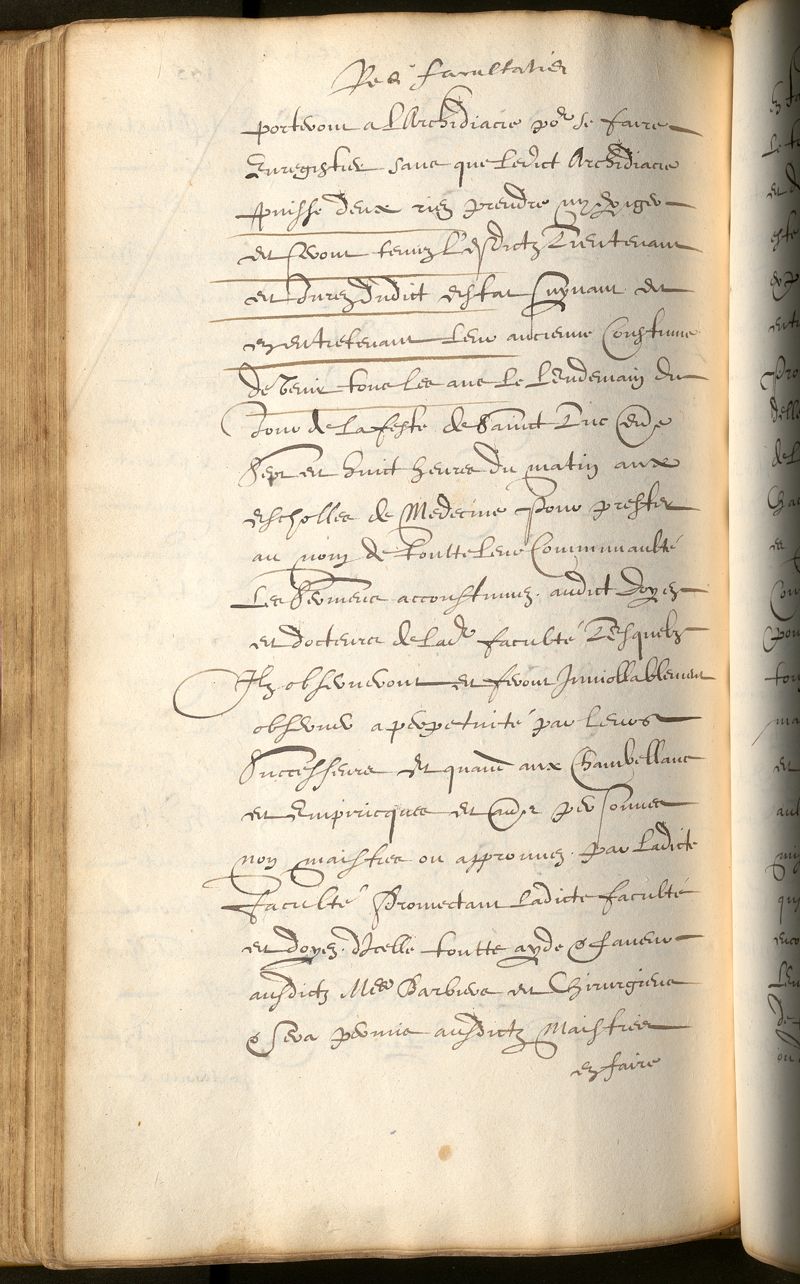 Res facultatis
porteront a l'Archidiacre po^r se faire
Enregistrer sans que ledict Archidiacre
Puisse deux rien prendre ny exiger
et seront tenuz lesdictz Lieutenant
et Jurez dudict estat suyvant et
en entretenant leur ancienne Coustume
de venir tous les ans le lendemain du
Jour de la feste de Sainct Luc entre
Sept et huict heures du matin aux
escholles de Medecine pour prester
au nom de toutte leur Communaulté
Les Sermens accoustumez. audict doyen
et docteurs de lad^e faculté Lesquelz
Ilz observeront et feront Inviollablement
observer a perpetuité par leurs
Successeurs et quant aux Chambellans
et Empiricques et au^es personnes
non maistres ou approuvez. par ladicte
faculté Promectant ladicte faculté
et doyen. d'icelle toutte ayde & faveur
ausdictz M^es Barbiers et Chirurgiens
& sera permis ausdictz Maistres
en faire